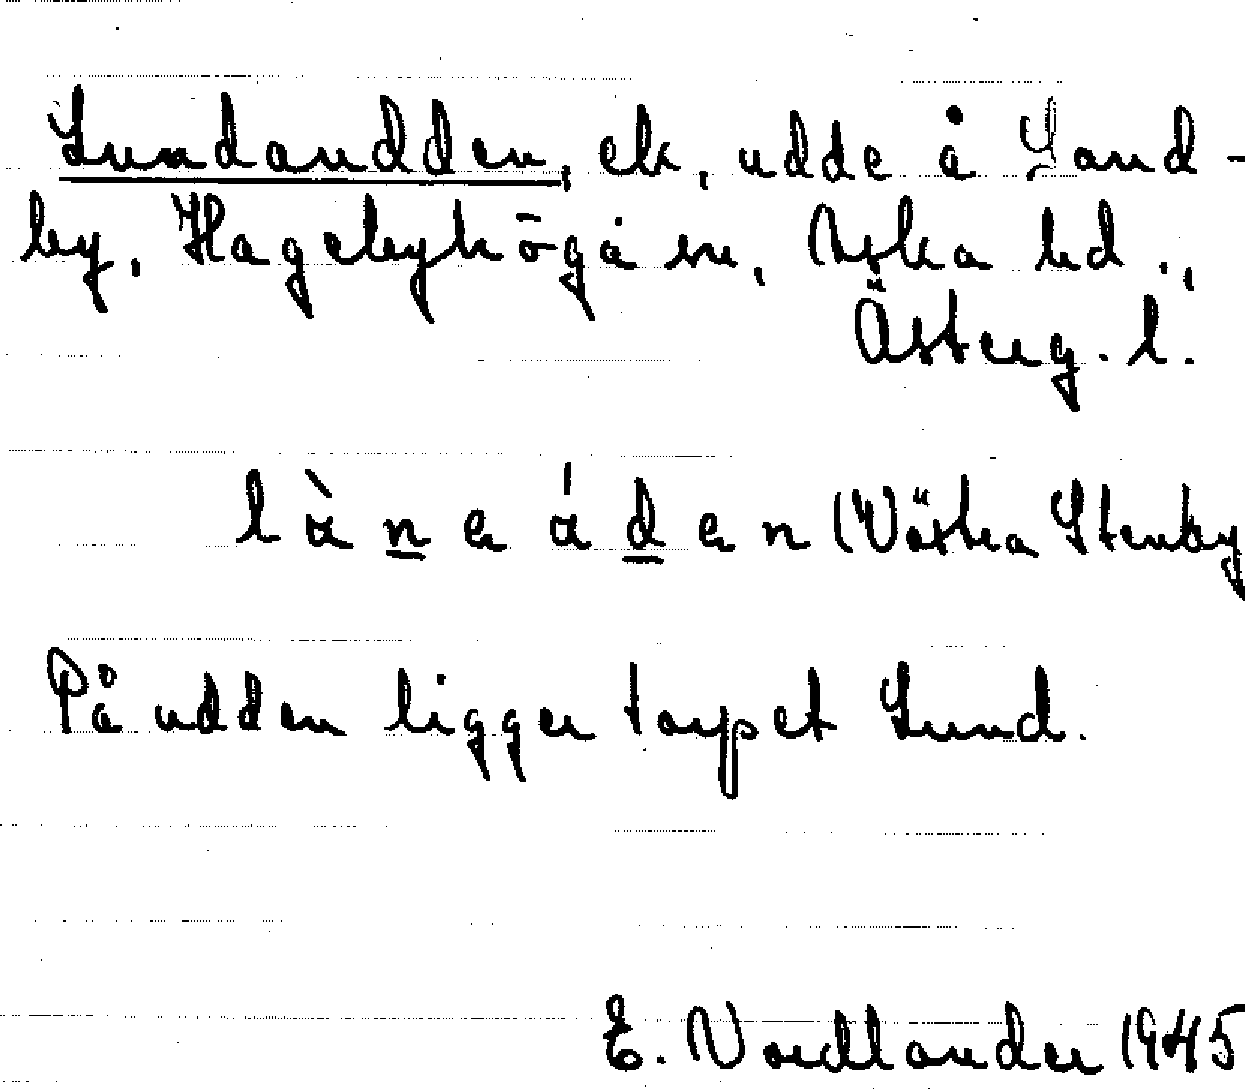 Lundaudden, ek, udde å Sand-
by, Hagebyhöga sn, Aska hd.,
Österg. l.
lànɐ áden (Västra Stenby
På udden ligger torpet Lund.
E. Nordlander 1945